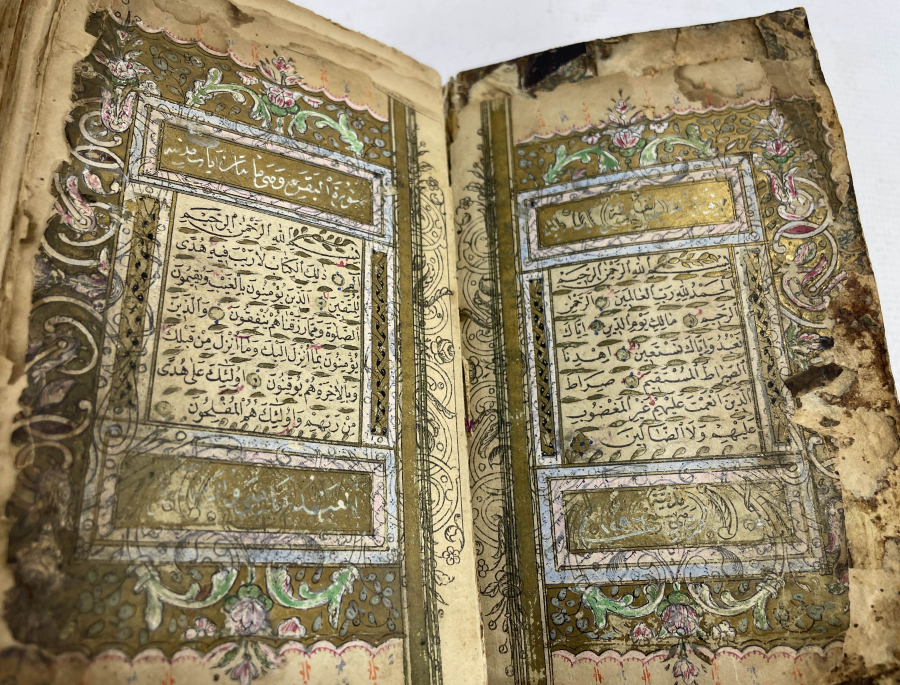 بسم الله الرحمن الرحيم
الحمد لله رب العالمين الرحمن
الرحيم مالك يوم الدين اياك
نعبد واياك نستعين اهدنا
الصراط المستقيم صراط
الذين انعمت عليهم غير المغضوب
عليهم ولا الضالين
سورة البقرة وهي مائتان
بسم الله الرحمن الرحيم
الم ذلك الكتاب لا ريب فيه هدى
للمتقين الذين يؤمنون بالغيب ويقيمون
الصلوة ومما رزقناهم ينفقون والذين
يؤمنون بما انزل اليك وما انزل من قبلك
وبالاخرة هم يوقنون اولئك على هدى
من ربهم واولئك هم المفلحون